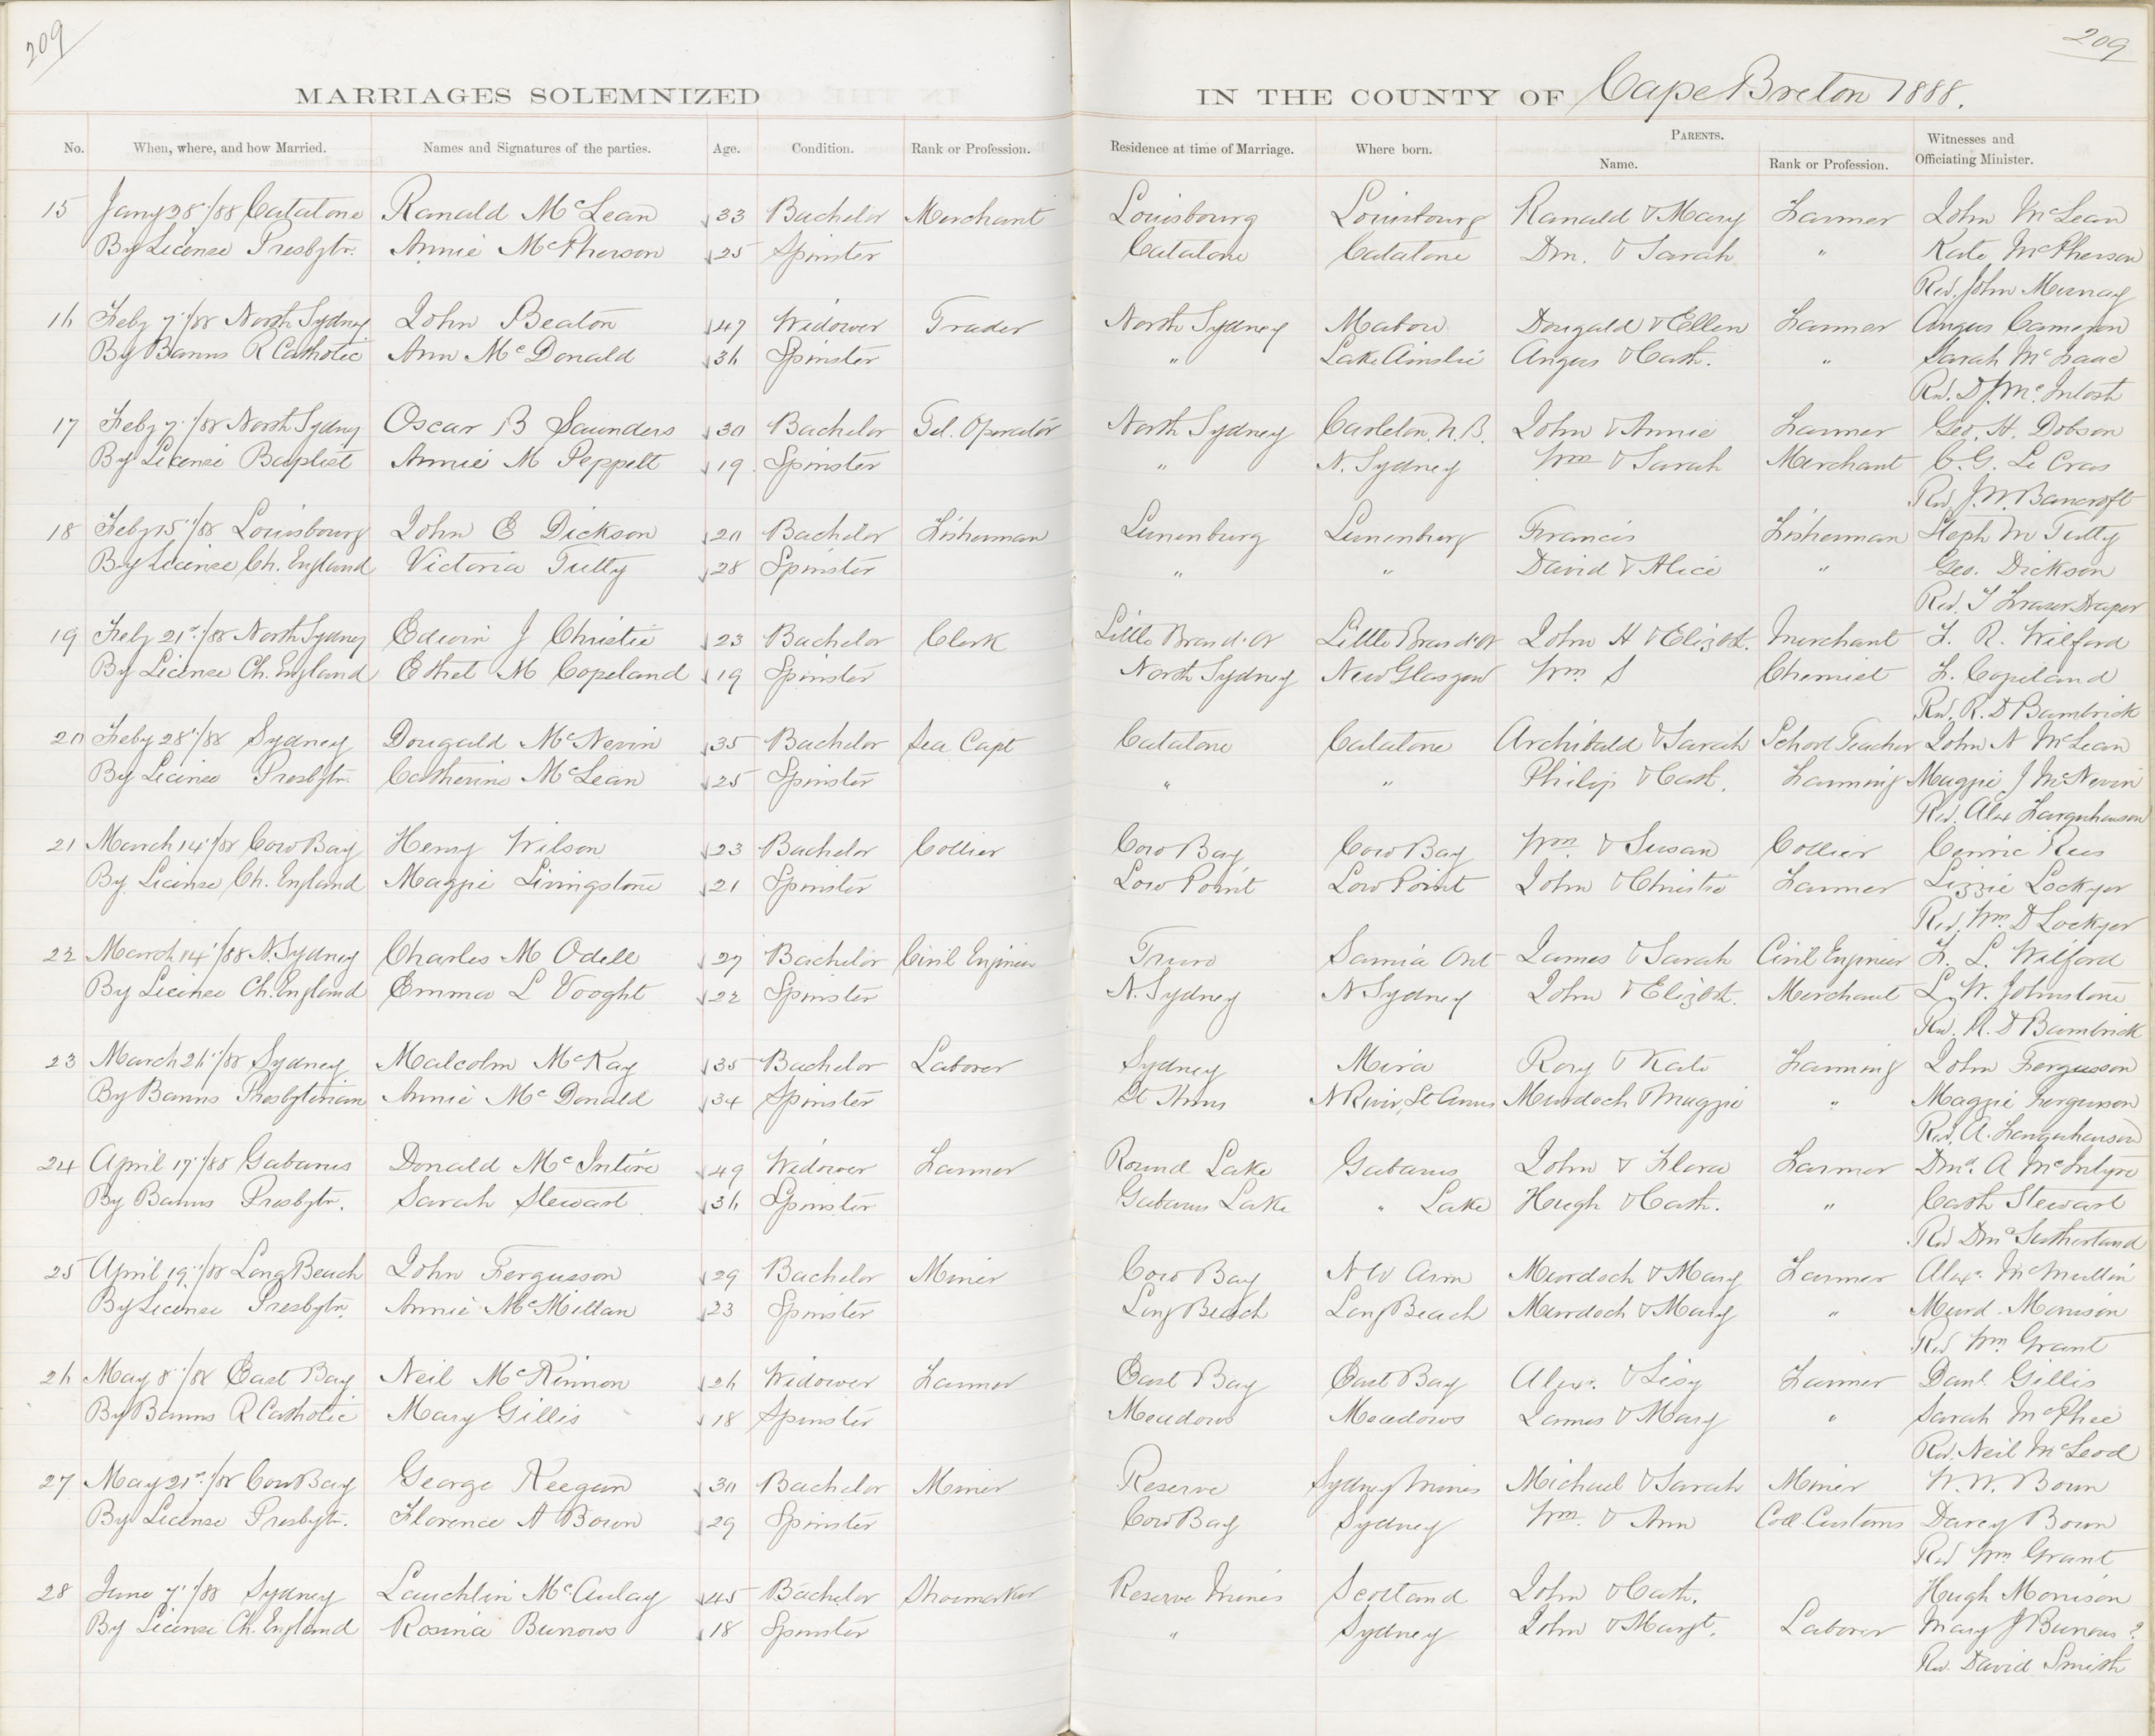 209
209
MARRIAGES SOLEMNIZED IN THE COUNTY OF Cape Breton 1888.
No. When, where, and how Married. Names and Signatures of the parties. Age. Condition. Rank or Profession. Residence at time of Marriage. Where born. PARENTS. Name. Rank or Profession. Witnesses and Officiating Minister.
15 Jany 28"/88 Catalone Ranald McLean 33 Bachelor Merchant Louisbourg Louisbourg Ranald & Mary Farmer John McLean
By License Presbytr. Annie McPherson 25 Spinster Catalone Catalone Dn. & Sarah " Kate McPherson
Rev. John Murray
16 Feby 7"/88 North Sydney John Beaton 47 Widower Trader North Sydney Mabou Dougald & Ellen Farmer Angus Cameron
By Banns R Catholic Ann McDonald 36 Spinster " Lake Ainslie Angus & Cath. " Sarah McIsaac
Rev. D.J. McIntosh
17 Feby 7"/88 North Sydney Oscar B Saunders 30 Bachelor Tel. Operator North Sydney Carleton, N.B. John & Annie Farmer Geo. H. Dobson
By License Baptist Annie M Peppett 19 Spinster " N. Sydney Wm & Sarah Merchant C. G. Le Cras
Rev J. W. Bancroft
18 Feby 15"/88 Louisbourg John E Dickson 20 Bachelor Fisherman Lunenburg Lunenburg Francis Fisherman Steph M Tutty
By License Ch. England Victoria Tutty 28 Spinster " " David & Alice " Geo. Dickson
Rev. T Fraser Draper
19 Feby 21st/88 North Sydney Edwin J Christie 23 Bachelor Clerk Little Bras d'Or Little Bras d'Or John H & Elizbt. Merchant F. R. Wilford
By License Ch. England Ethel M Copeland 19 Spinster North Sydney New Glasgow Wm S Chemist F. Copeland
Rev. R. D Bambrick
20 Feby 28"/88 Sydney Dougald McNevin 35 Bachelor Sea Capt Catalone Catalone Archibald & Sarah School Teacher John N McLean
By License Presbytr. Catherine McLean 25 Spinster " " Philip & Cath. Farming Maggie J McNevin
Rev. Alex Farquharson
21 March 14"/88 Cow Bay Henry Wilson 23 Bachelor Collier Cow Bay Cow Bay Wm & Susan Collier Rees
By License Ch. England Maggie Livingstone 21 Spinster Low Point Low Point John & Christie Farmer Lizzie Lockyer
Rev. Wm. D Lockyer
22 March 14"/88 N. Sydney Charles M Odell 27 Bachelor Civil Engineer Truro Sarnia Ont James & Sarah Civil Engineer F. L. Wilford
By License Ch. England Emma L Vooght 22 Spinster N. Sydney N Sydney John & Elizbt. Merchant L. W. Johnstone
Rev. R. D Bambrick
23 March 26"/88 Sydney Malcolm McKay 35 Bachelor Laborer Sydney Mira Rory & Kate Farming John Fergusson
By Banns Presbyterian Annie McDonald 34 Spinster St Anns N River, St Anns Murdoch & Maggie " Maggie Fergusson
Rev. A. Farquharson
24 April 17"/88 Gabarus Donald McIntire 49 Widower Farmer Round Lake Gabarus John & Flora Farmer Dnd. A McIntyre
By Banns Presbytr. Sarah Stewart 36 Spinster Gabarus Lake " Lake Hugh & Cath. " Cath Stewart
Rev Dnd Sutherland
25 April 19"/88 Long Beach John Fergusson 29 Bachelor Miner Cow Bay N W Arm Murdoch & Mary Farmer Alexr. McMullin
By License Presbytr. Annie McMillan 23 Spinster Long Beach Long Beach Murdoch & Mary " Murd. Morrison
Rev Wm Grant
26 May 8"/88 East Bay Neil McKinnon 26 Widower Farmer East Bay East Bay Alexr. & Lisy Farmer Danl Gillis
By Banns R Catholic Mary Gillis 18 Spinster Meadows Meadows James & Mary " Sarah McPhee
Rev. Neil McLeod
27 May 21st/88 Cow Bay George Keegan 30 Bachelor Miner Reserve Sydney Mines Michael & Sarah Miner W. W. Bown
By License Presbytr. Florence A Bown 29 Spinster Cow Bay Sydney Wm. & Ann Coll. Customs Darcy Bown
Rev Wm Grant
28 June 7"/88 Sydney Lauchlin McAulay 45 Bachelor Shoemaker Reserve Mines Scotland John & Cath. Hugh Morrison
By License Ch. England Rosina Burrows 18 Spinster " Sydney John & Margt. Laborer Mary J Burrows ?
Rev. David Smith